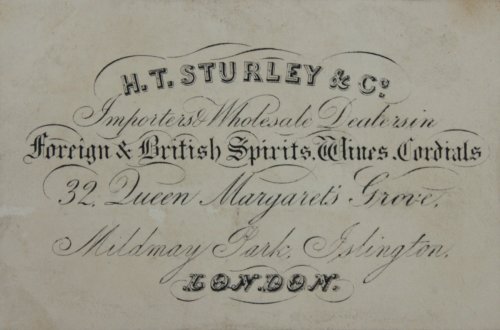 H. T. STURLEY & Co.
Importers & Wholesale Dealers in
Foreign & British Spirits, Wines, Cordials
32, Queen Margaret's Grove,
Mildmay Park, Islington,
LONDON.